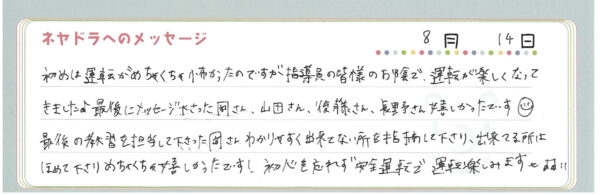 ネヤドラへのメッセージ
8月 14日
初めは運転がめちゃくちゃ怖かったのですが指導員の皆様のお陰で、運転が楽しくなって
きましたよ 最後にメッセージ下さった岡さん、山田さん、後藤さん、長野さん嬉しかったです
最後の教習を担当して下さった岡さん わかりやすく出来てない所を指摘して下さり、出来てる所は
ほめて下さりめちゃくちゃ嬉しかったです! 初心を忘れず安全運転で運転楽しみます